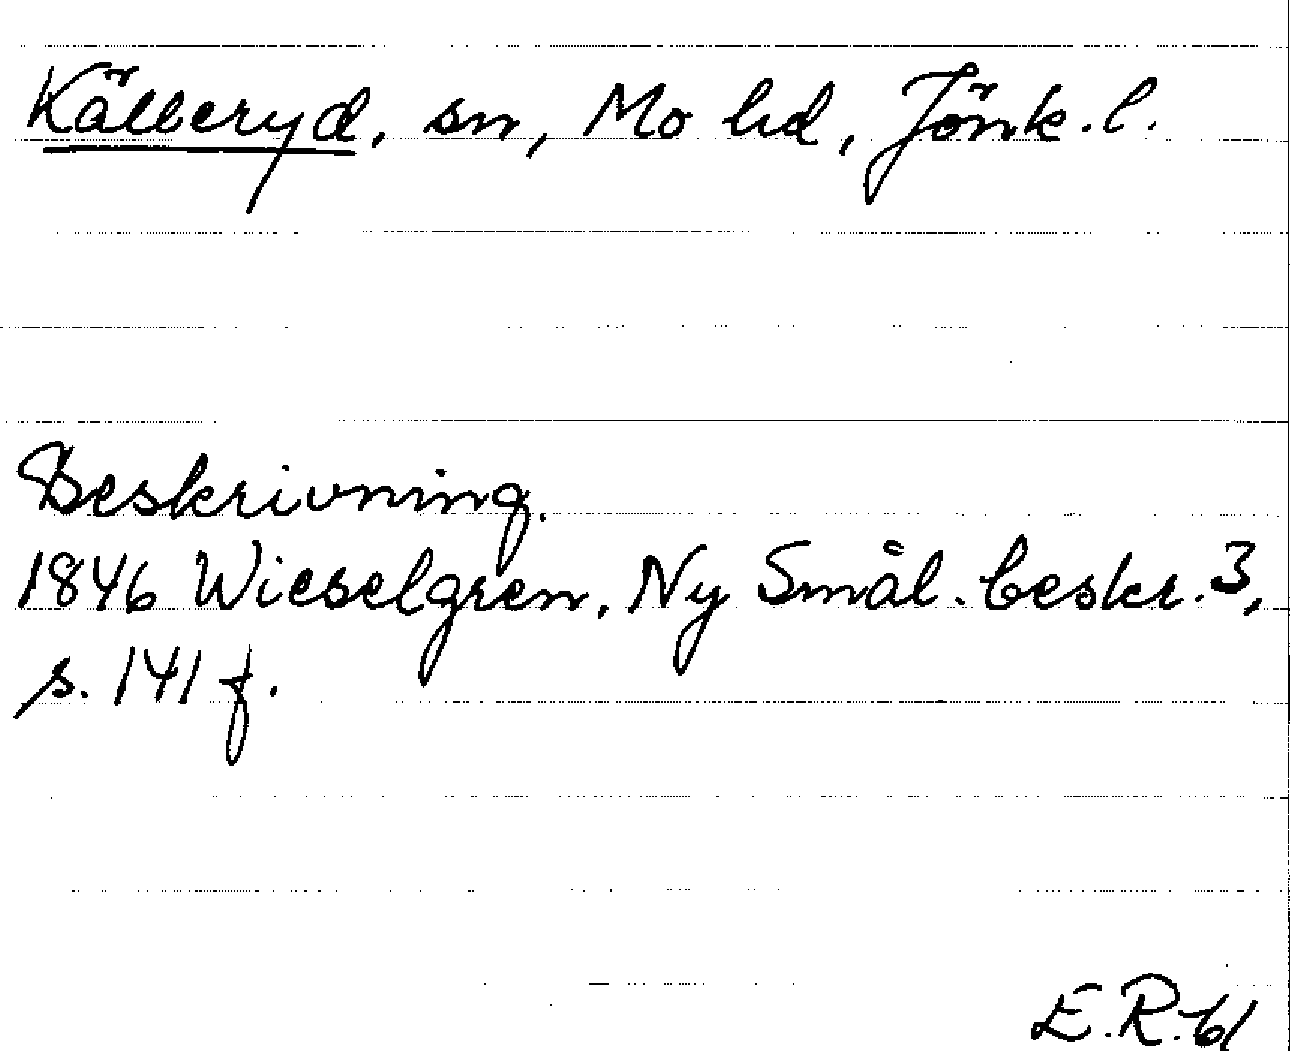 Källeryd, sn, Mo hd, Jönk. l.
Beskrivning.
1846 Wieselgren, Ny Smål. beskr. 3,
s. 141 f.
E.R. 61